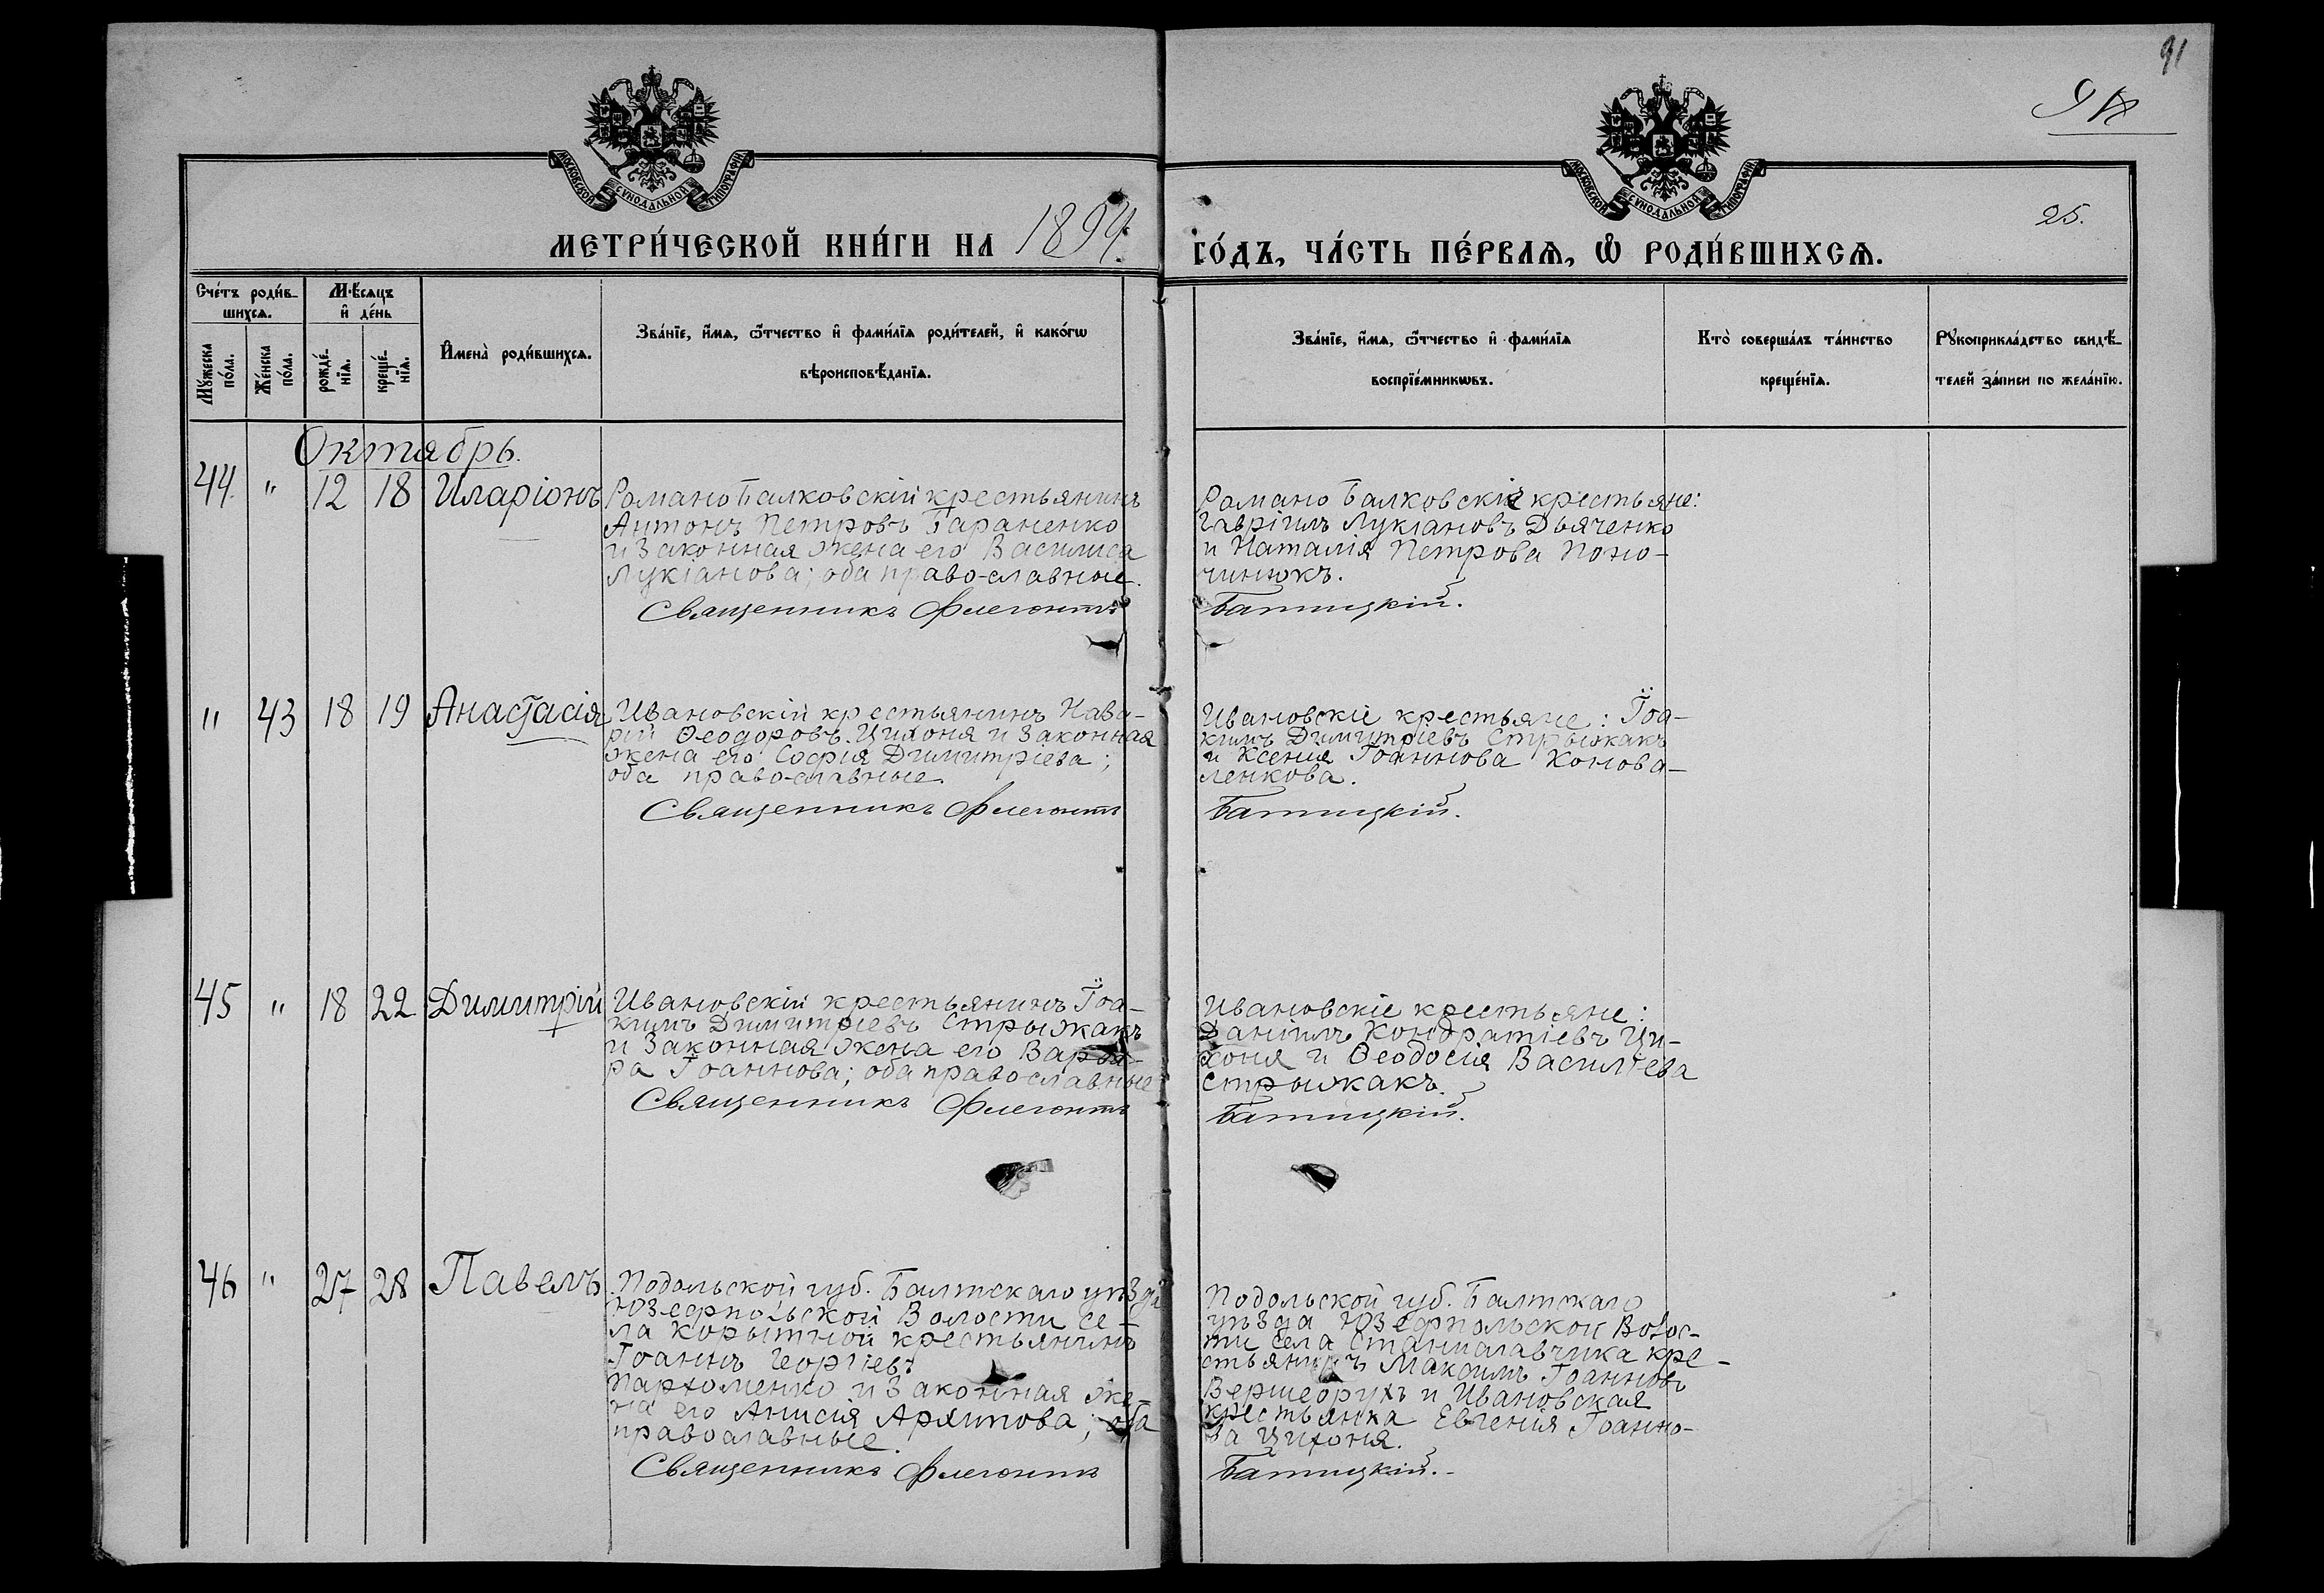 91
25.
МОСКОВСКОЙ СУНОДАЛЬНОЙ ТИПОГРАФІИ
МОСКОВСКОЙ СУНОДАЛЬНОЙ ТИПОГРАФІИ
МЕТРИ́ЧЕСКОЙ КНИ́ГИ НА 1894. ГО́ДЪ, ЧА́СТЬ ПЕ́РВАѦ, Ѡ РОДИ́ВШИХСѦ.
Сче́тъ роди́в-
шихсѧ.
Мꙋ́жеска
по́ла.
Же́нска
по́ла.
Мѣ́сѧцъ
и҆ де́нь
рожде́-
нїѧ.
креще́-
нїѧ.
И҆мена̀ роди́вшихсѧ.
Зва́нїе, и҆́мѧ, ѻ҆́тчество и҆ фами́лїѧ роди́телей, и҆ како́гѡ
вѣроисповѣ́данїѧ.
Зва́нїе, и҆́мѧ, ѻ҆́тчество и҆ фами́лїѧ
воспрїе́мникѡвъ.
Кто̀ соверша́лъ та́инство
креще́нїѧ.
Рꙋкоприкла́дство свидѣ́-
телей за́писи по жела́нїю.
Октябрь.
44. " 12 18 Иларіонъ
Романо Балковскій крестьянинъ
Антонъ Петровъ Тараненко
и законная жена его Василиса
Лукіанова; оба право-славные.
Священникъ Флегонтъ
Романо Балковскіе крестьяне:
Гавріилъ Лукіановъ Дьяченко
и Наталія Петрова Поно-
чинюкъ.
Батицкій.
" 43 18 19 Анастасія
Ивановскій крестьянинъ Наза-
рій Ѳеодоровъ Цихоня и законная
жена его Софія Димитріева;
оба право-славные.
Священникъ Флегонтъ
Ивановскіе крестьяне: Іоа-
кимъ Димитріевъ Стрыжакъ
и Ксенія Іоаннова Конова-
ленкова.
Батицкій.
45 " 18 22 Димитрій
Ивановскій крестьянинъ Іоа-
кимъ Димитріевъ Стрыжакъ
и законная жена его Варва-
ра Іоаннова; оба право славные
Священникъ Флегонтъ
Ивановскіе крестьяне:
Даніилъ Кондратіевъ Ци-
хоня и Ѳеодосія Василіева
Стрыжакъ.
Батицкій.
46 " 27 28 Павелъ
Подольской губ. Балтскаго уѣзда
Юзефпольской Волости се-
ла Корытной крестьянинъ
Іоаннъ Георгіевъ
Пархоменко и законная же-
на его Анисія Архипова; оба
православные.
Священникъ Флегонтъ
Подольской губ. Балтскаго
уѣзда Юзефпольской Волос-
ти села Станиславчика кре-
стьянинъ Максимъ Іоанновъ
и Ивановская
крестьянка Евгенія Іоанно-
ва Цихоня.
Батицкій.-